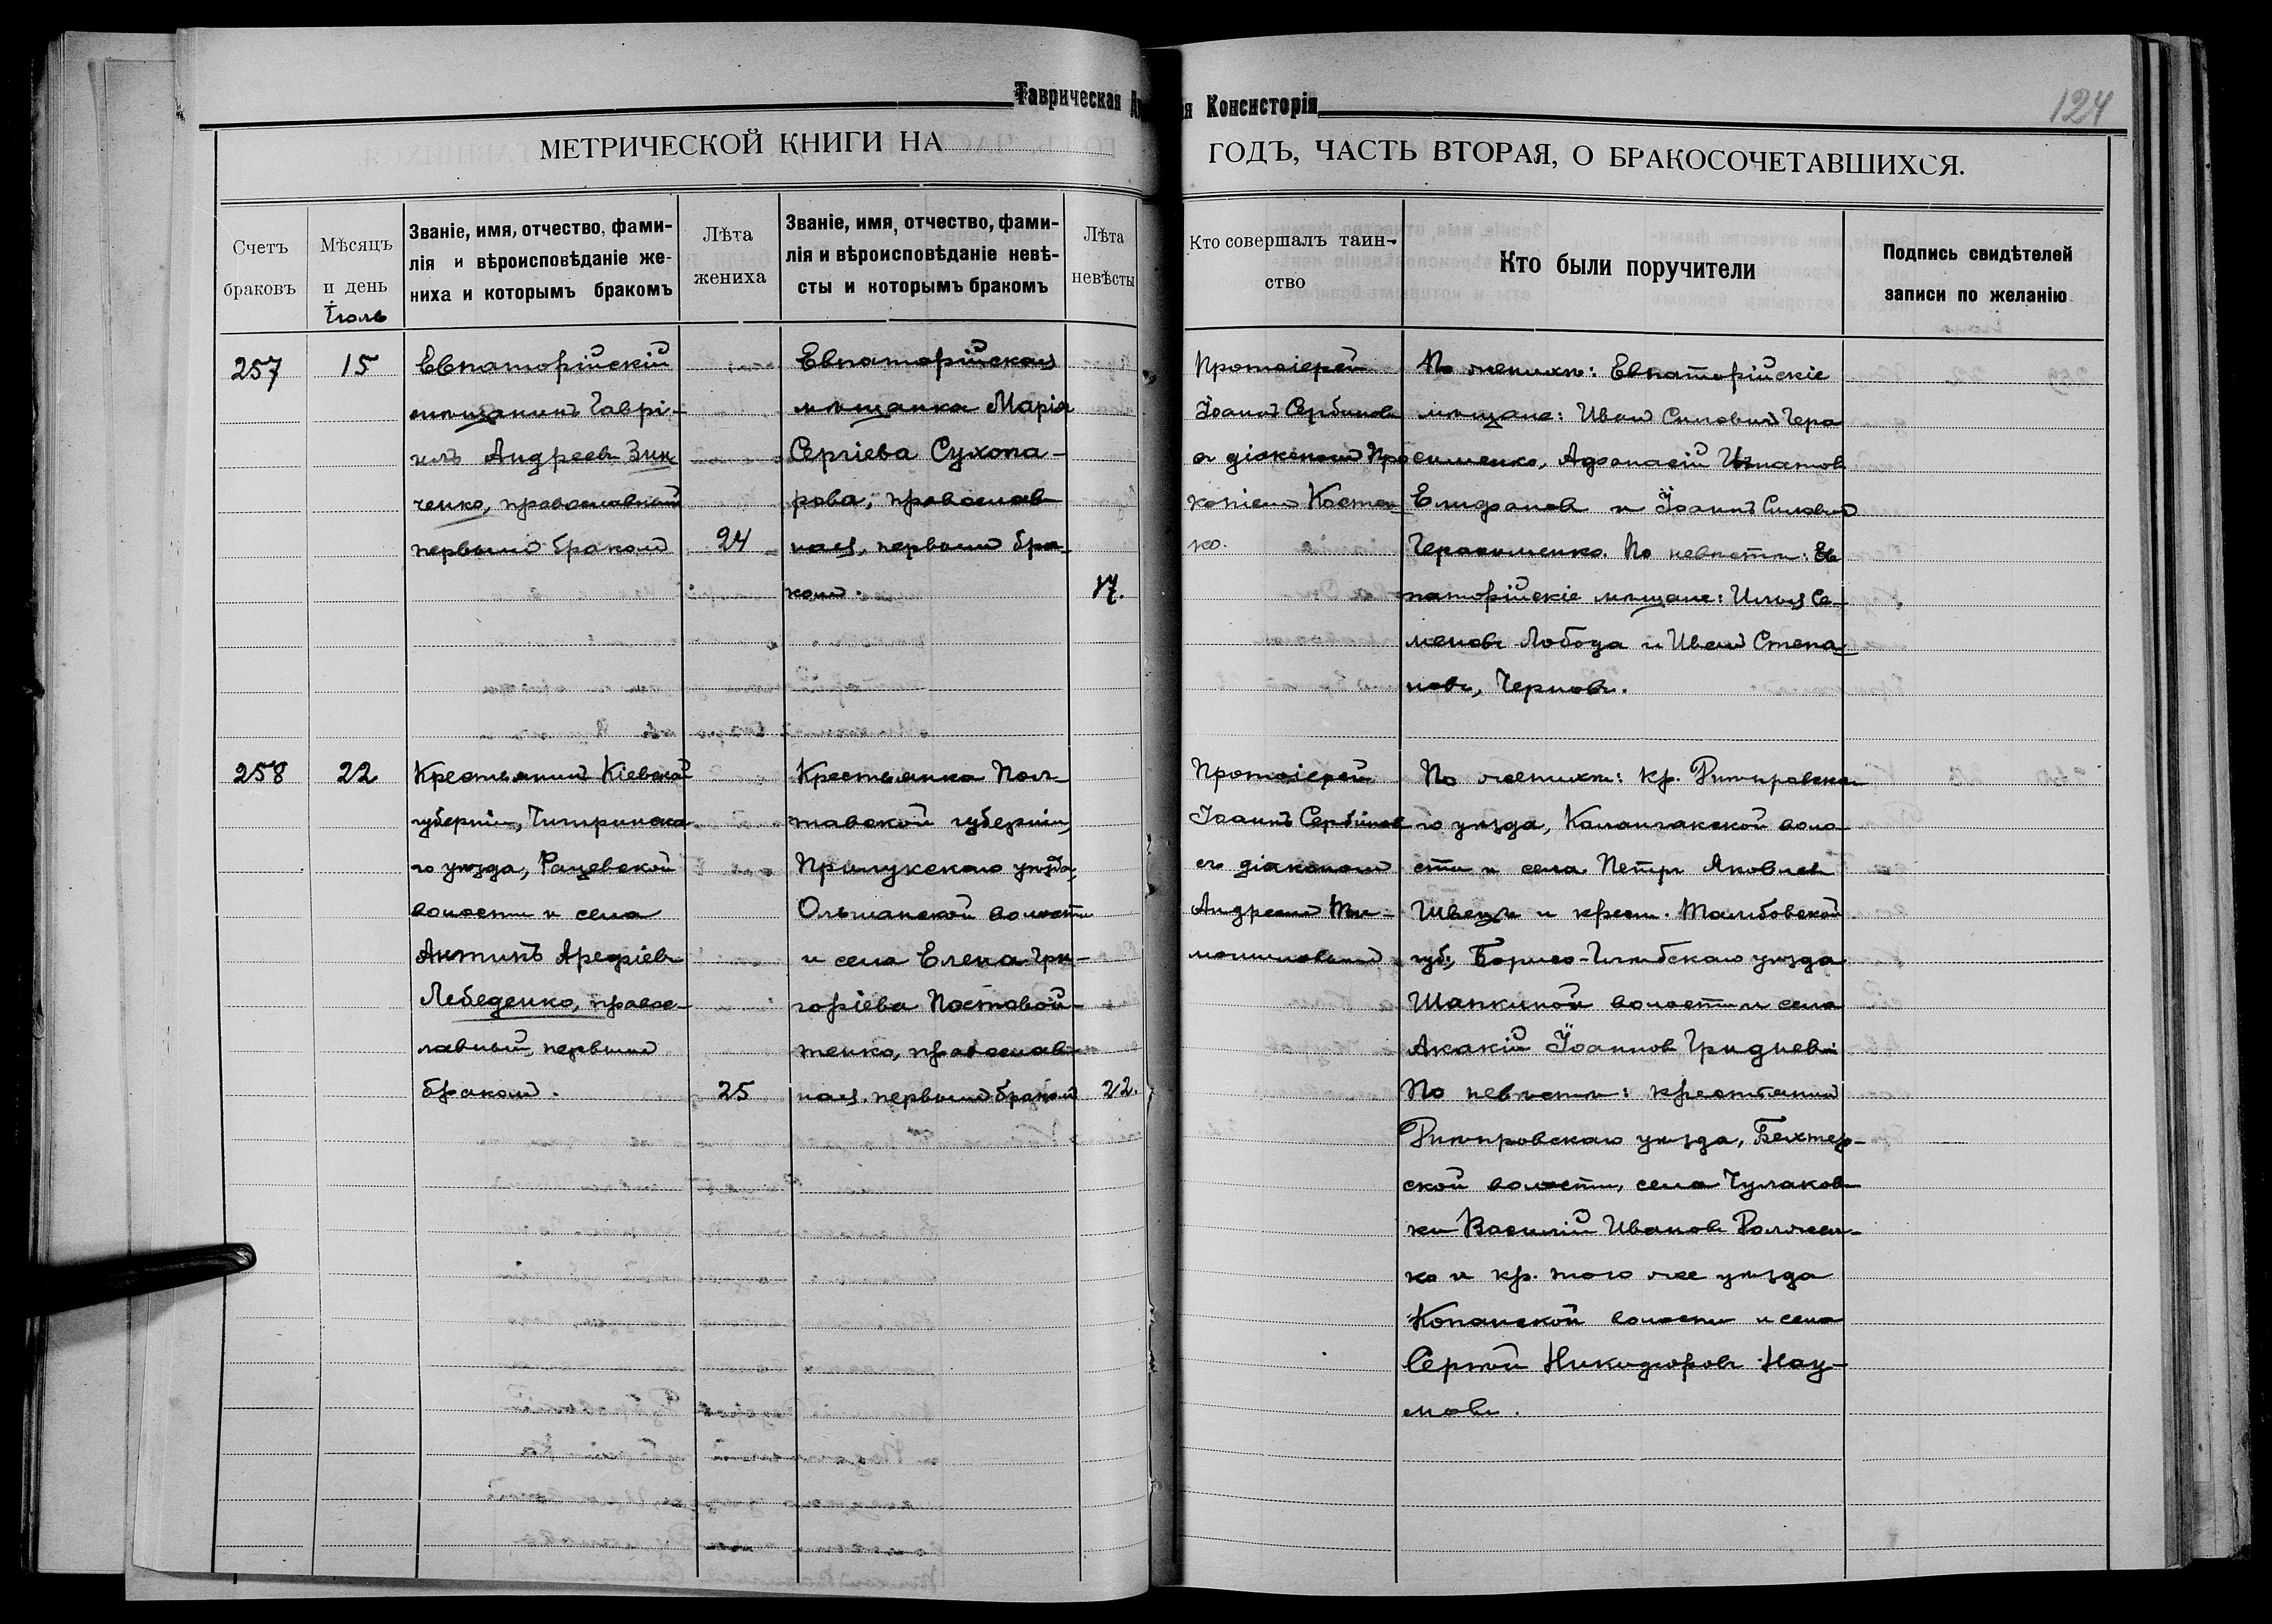 Таврическая
я Консисторія
124
МЕТРИЧЕСКОЙ КНИГИ НА
ГОДЪ, ЧАСТЬ ВТОРАЯ, О БРАКОСОЧЕТАВШИХСЯ.
Счетъ
браковъ
Мѣсяцъ
и день
Іюль
Званіе, имя, отчество, фами-
лія и вѣроисповѣданіе же-
ниха и которымъ бракомъ
Лѣта
жениха
Званіе, имя, отчество, фами-
лія и вѣроисповѣданіе невѣ-
сты и которымъ бракомъ
Лѣта
невѣсты
Кто совершалъ таин-
ство
Кто были поручители
Подпись свидѣтелей
записи по желанію
257
15
Евпаторійскій
мѣщанинъ Гаврі-
илъ Андреевъ Зин
ченко, православный
первымъ бракомъ
24
Евпаторійская
мѣщанка Марія
Сергіева Сухопа-
рова, православ
ная, первымъ бра-
комъ.
17.
Протоіерей
Іоаннъ Сербиновъ
съ діакономъ Про
копіемъ Костен
ко.
По женихѣ: Евпаторійскіе
мѣщане: Иванъ Силовичъ Гера
сименко, Афанасій Игнатов
Епифановъ и Іоаннъ Силовъ
Герасименко. По невѣстѣ: Ев
паторійскіе мѣщане: Илья Се-
меновъ Лобода и Иванъ Степа
новъ, Черновъ.
258
22
Крестьянинъ Кіевской
губерніи, Чигиринска
го уѣзда, Рацевской
волости и села
Антипъ Арефіевъ
Лебеденко, правос-
лавный, первымъ
бракомъ.
25
Крестьянка Пол-
тавской губерніи,
Прилукскаго уѣзда,
Ольшанской волости
и села Елена Гри-
горіева Постовой-
тенко, православ
ная, первымъ бракомъ
22.
Протоіерей
Іоаннъ Сербиновъ
съ діакономъ
Андреемъ Ти-
мошевскимъ
По женихѣ: кр. Днѣпровска
го уѣзда, Каланчакской воло-
сти и села Петръ Яковлевъ
Швецъ и крест. Тамбовской
губ., Борисо-Глѣбскаго уѣзда
Шапкиной волости и села
Акакій Іоанновъ Гридневъ
По невѣстѣ: крестьянинъ
Днѣпровскаго уѣзда, Бехтер-
ской волости, села Чулаков
ки Василій Ивановъ
ко и кр. того же уѣзда
Копанской волости и села
Сергѣй Никифоровъ Нау-
мовъ.